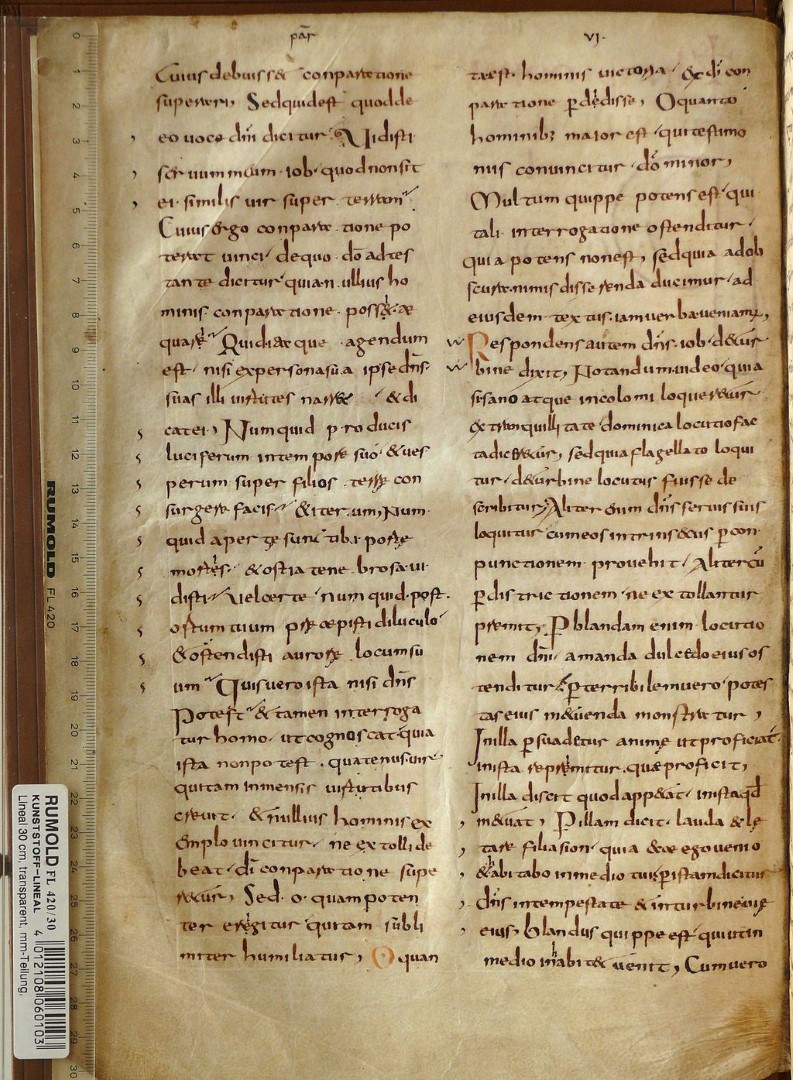 par̄
VI·
Cuius debuisset conparatione
superari, Sed quid est quod de
eo voce dn̄i dicitur, Vidisti
servum meum iob quod non sit
ei similis vir super terram
Cuius ergo conparatione po
terat vinci de quo dō adtes
tante dicitur quia n̄ ullius ho
minis conparatione posset ae
quari Quid itaque agendum
est nisi ex persona sua ipse dn̄s
suas illi virtutes narret & di
cat ei, Numquid producis
luciferum in tempore suo & ves
perum super filios terrę con
surgere facis & iterum, Num
quid apertę sunt tibi portę
mortis & ostia tenebrosa vi
disti Vel certe numquid post
ortum tuum pręcępisti diluculo
& ostendisti aurorę locum su
um Quis vero ista nisi dn̄s
Potest & tamen interroga
tur homo ut cognoscat quia
ista non potest quatenus vir
qui tam inmensis virtutibus
crevit & nullius hominis ex
emplo vincitur ne extolli de
beat dī conparatione supe
retur, Sed o quam poten
ter erigitur qui tam subli
miter humiliatur, O quan
ta est hominis victoria & dī con
paratione perdedisse, O quanto
hominib; maior est qui testimo
niis convincitur dō minor,
Multum quippe potens est qui
tali interrogatione ostenditur
quia potens non est, sed quia ad ob
scura nimis disserenda ducimur ad
eiusdem textus iam verba veniamus,
Respondens autem dn̄s iob de tur
bine dixit, Notandum video quia
si sano atque incolomi loqueretur
ex tranquillitate dominica locutio fac
ta diceretur, sed quia flagellato loqui
tur de turbine locutus fuisse de
scribitur, Aliter enim dn̄s servis suis
loquitur cum eos intrinsecus per con
punctionem provehit Aliter cū
per districtionem ne extollantur
premit, P blandam enim locutio
nem dn̄i amanda dulcedo eius os
tenditur P terribilem vero potes
tas eius metuenda monstratur,
In illa persuadetur animę ut proficiat
in ista reprimitur quę proficit,
In illa discit quod appetat in ista qđ
metuat, P illam dicit lauda & lę
tare filia sion quia ecce ego venio
& habitabo in medio tui, P istam dicitur
dn̄s in tempestate & in turbine vię
eius, Blandus quippe est qui ut in
medio inhabitet venit, Cum vero
RUMOLD FL 420
RUMOLD FL 420/30
KUNSTSTOFF-LINEAL
Lineal 30 cm, transparent, mm-Teilung,
4 012108 060103